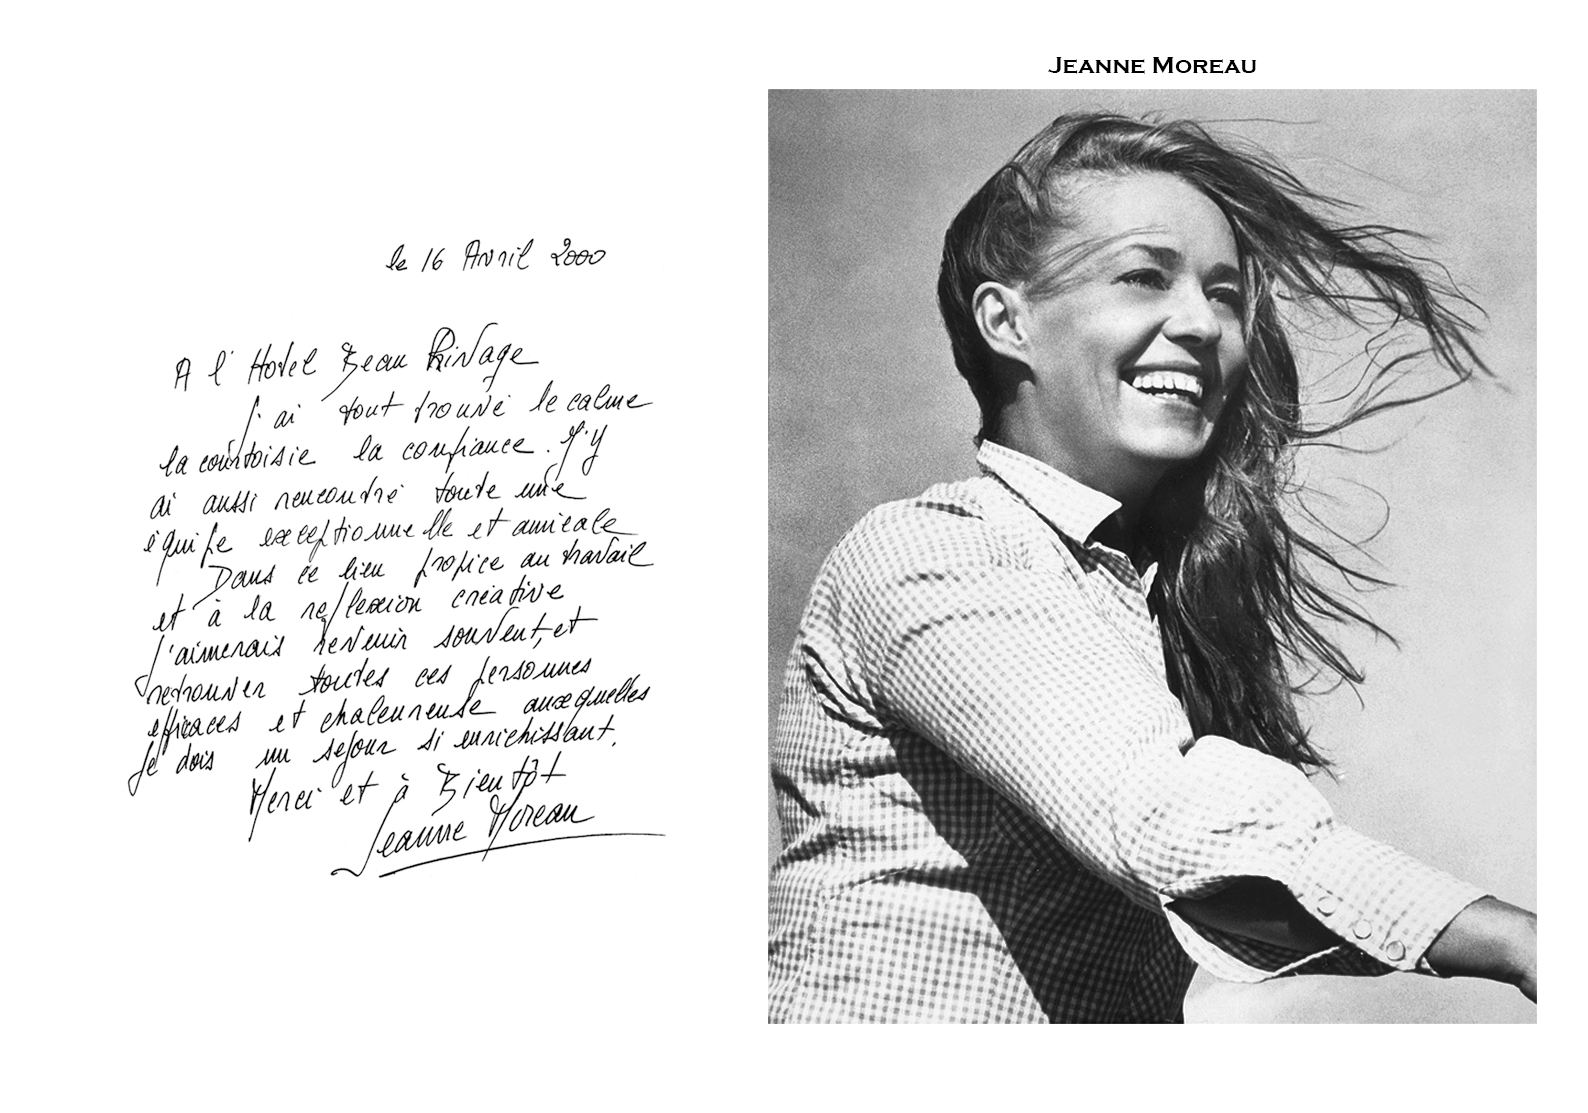 JEANNE MOREAU
le 16 Avril 2000
A l'Hotel Beau Rivage
J'ai tout trouvé le calme
la courtoisie la confiance. J'y
ai aussi rencontré toute une
équipe exceptionnelle et amicale
Dans ce lieu propice au travail
et à la reflexion créative
j'aimerais revenir souvent, et
retrouver toutes ces personnes
efficaces et chaleureuse auxquelles
je dois un sejour si enrichissant.
Merci et à Bientôt
Jeanne Moreau